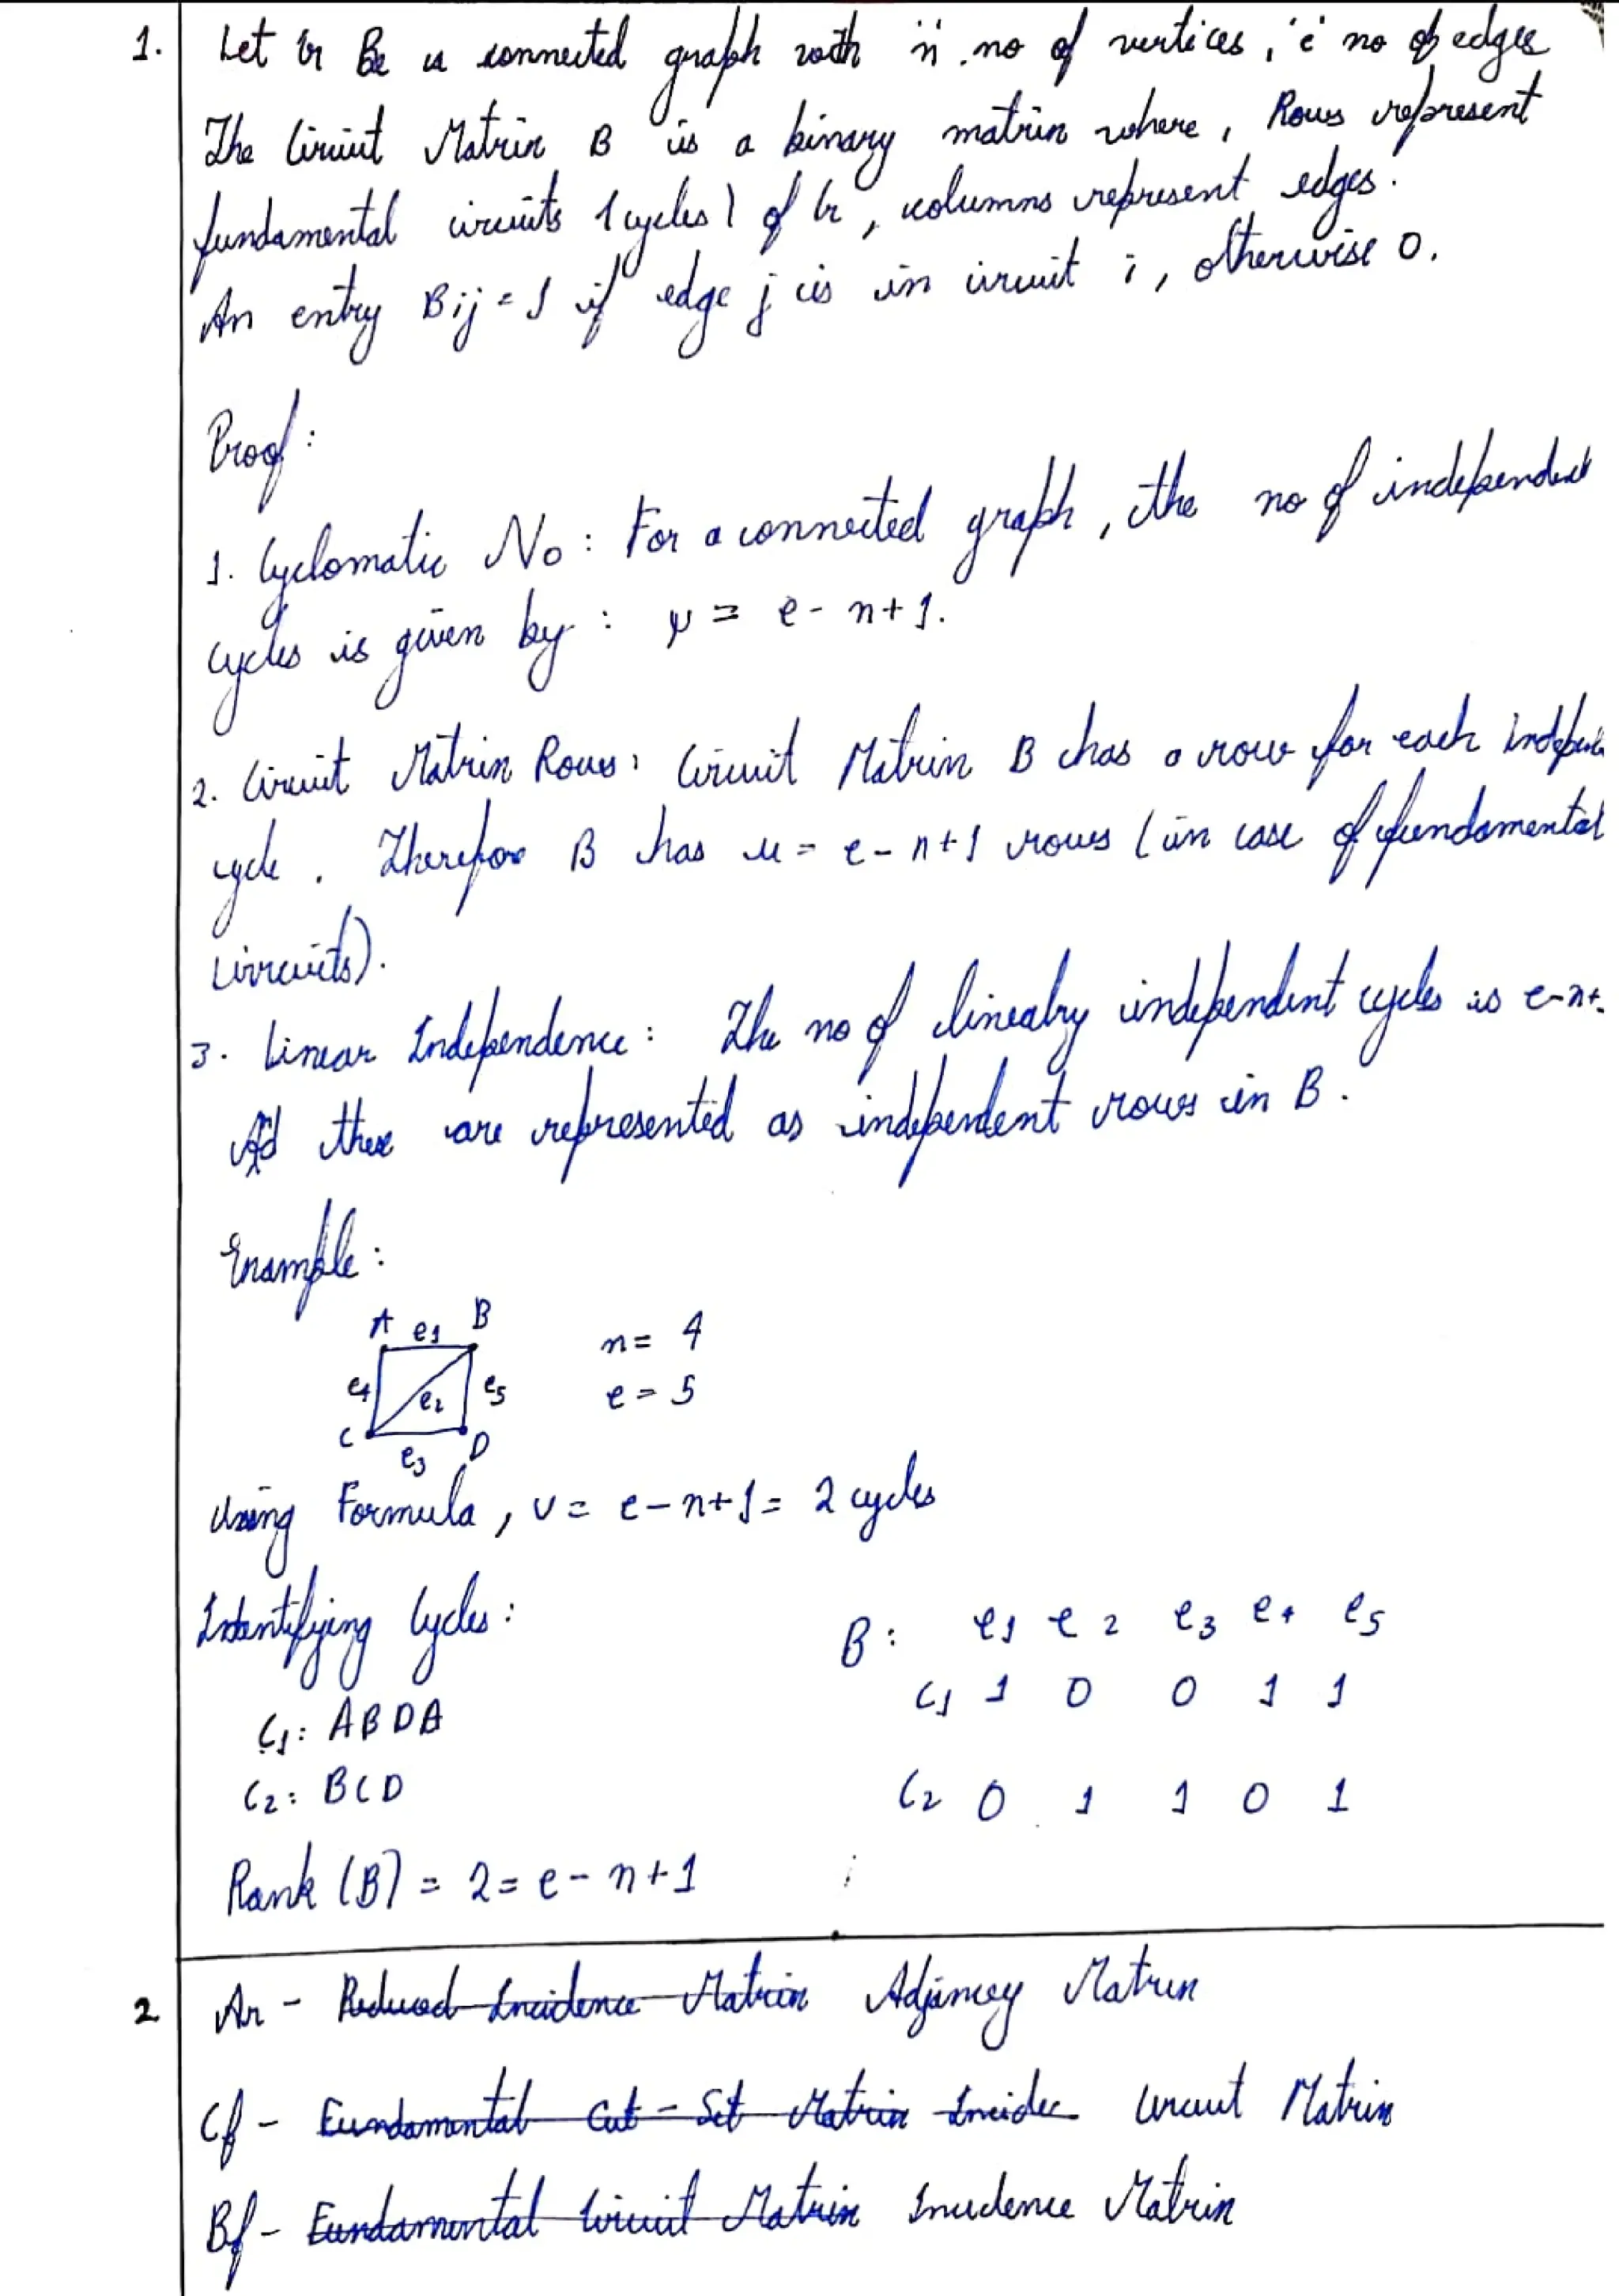 1. Let G Be a connected graph with 'n' no of vertices, 'e' no of edges
The Circuit Matrix B is a binary matrix where, Rows represent
fundamental circuits (cycles) of G, columns represent edges.
An entry Bij = 1 if edge j is in circuit i, otherwise 0.
Proof:
1. Cyclomatic No: For a connected graph, the no of independent
cycles is given by: μ = e - n + 1.
2. Circuit Matrix Rows: Circuit Matrix B has a row for each indepen
cycle. Therefore B has μ = e - n + 1 rows (in case of fundamental
circuits).
3. Linear Independence: The no of linealry independent cycles is e-n+
these are represented as independent rows in B.
Example:
A e1 B
n = 4
e4 e2 e5
e = 5
C e3 D
Using Formula, ν = e - n + 1 = 2 cycles
Identifying Cycles:
B: e1 e2 e3 e4 e5
C1: ABDA
C1 1 0 0 1 1
C2: BCD
C2 0 1 1 0 1
Rank (B) = 2 = e - n + 1
2 Ar - Reduced Incidence Matrix Adjancey Matrix
Cf - Fundamental Cut-Set Matrix Incidec Circuit Matrix
Bf - Fundamental Circuit Matrix Incidence Matrix